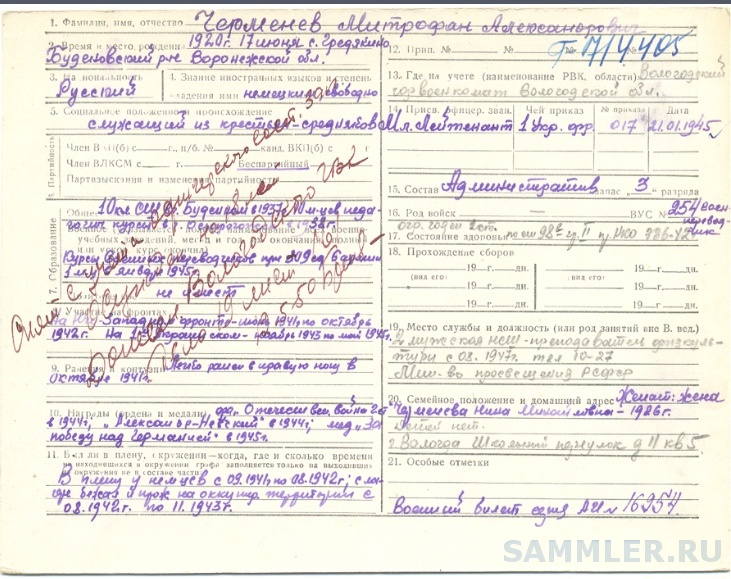 1. Фамилия, имя, отчество Черменев Митрофан Александрович
2. Время и место рожден. 1920г. 17 июня с. Средякино,
Буденовский р-не Воронежской обл.
3. Национальность Русский
4. Знание иностранных языков и степень владения ими немецкий свободно
5. Социальное положение и происхождение
служащий из крестьян-средняков
6. Партийность
Член ВКП(б) с г., п/б. № канд. ВКП(б) с г.
Член ВЛКСМ с г. Беспартийный
Партвзыскания и изменения парт.
7. Образование
Общее 10 кл СШ Буденном в 1937
курсы в г. Острогожске 1938г.
Курсы военных переводчиков при 309 сд
1 м-ц январь 1945г.
не имеет
8. Участие на фронтах
на Юго-Западном фронте-июнь 1941г по октябрь
1942г. На 1 Украинском- ноябрь 1943 по май 1945г.
9. Ранения и контузии Легко ранен в правую ногу в
Октябре 1941г.
10. Награды (ордена и медали) орд „Отечествен. война 2 ст"
в 1944г; „Александр-Невский" в 1944г; мед „За
победу над Германией" в 1945г.
11. Был ли в плену, окружении—когда, где и сколько времени
на находившихся в окружении графа заполняется только на выходивших
не в составе части)
В плену у немцев с 09.1941г по 08.1942г; с ла-
геря бежал и прож на оккупир. территории с
08.1942г. по 11.1943г.
12. Прип. № № №
Г-17/4405
13. Где на учете (наименование РВК, области) Вологодский
горвоенкомат Вологодской обл.
14. Присв. офицер. зван. Чей приказ № приказа Дата
Мл. Лейтенант 1 Укр. фр. 017 21.01.1945г
15. Состав Административ запас „3" разряда
16. Род войск ВУС № 954 Воен-
переводчик
огр. годен 2 ст.
17. Состояние здоровья по ст 98б гр. II пр. НКО 336-42г
18. Прохождение сборов
(вид его) (вид его)
19 г. дн. 19 г. дн.
19 г. дн. 19 г. дн.
19 г. дн. 19 г. дн.
19. Место службы и должность (или род занятий вне В. вед.)
2 мужская НСШ-преподаватель физкуль-
туры с 08.1947г. тел 10-27
Мин-во просвещения РСФСР
20. Семейное положение и домашний адрес Женат: жена
Черменева Нина Михайловна - 1926г.
детей нет.
г. Вологда Школьный переулок д 11 кв 5.
21. Особые отметки
Военный билет серия АИ № 16954
SAMMLER.RU